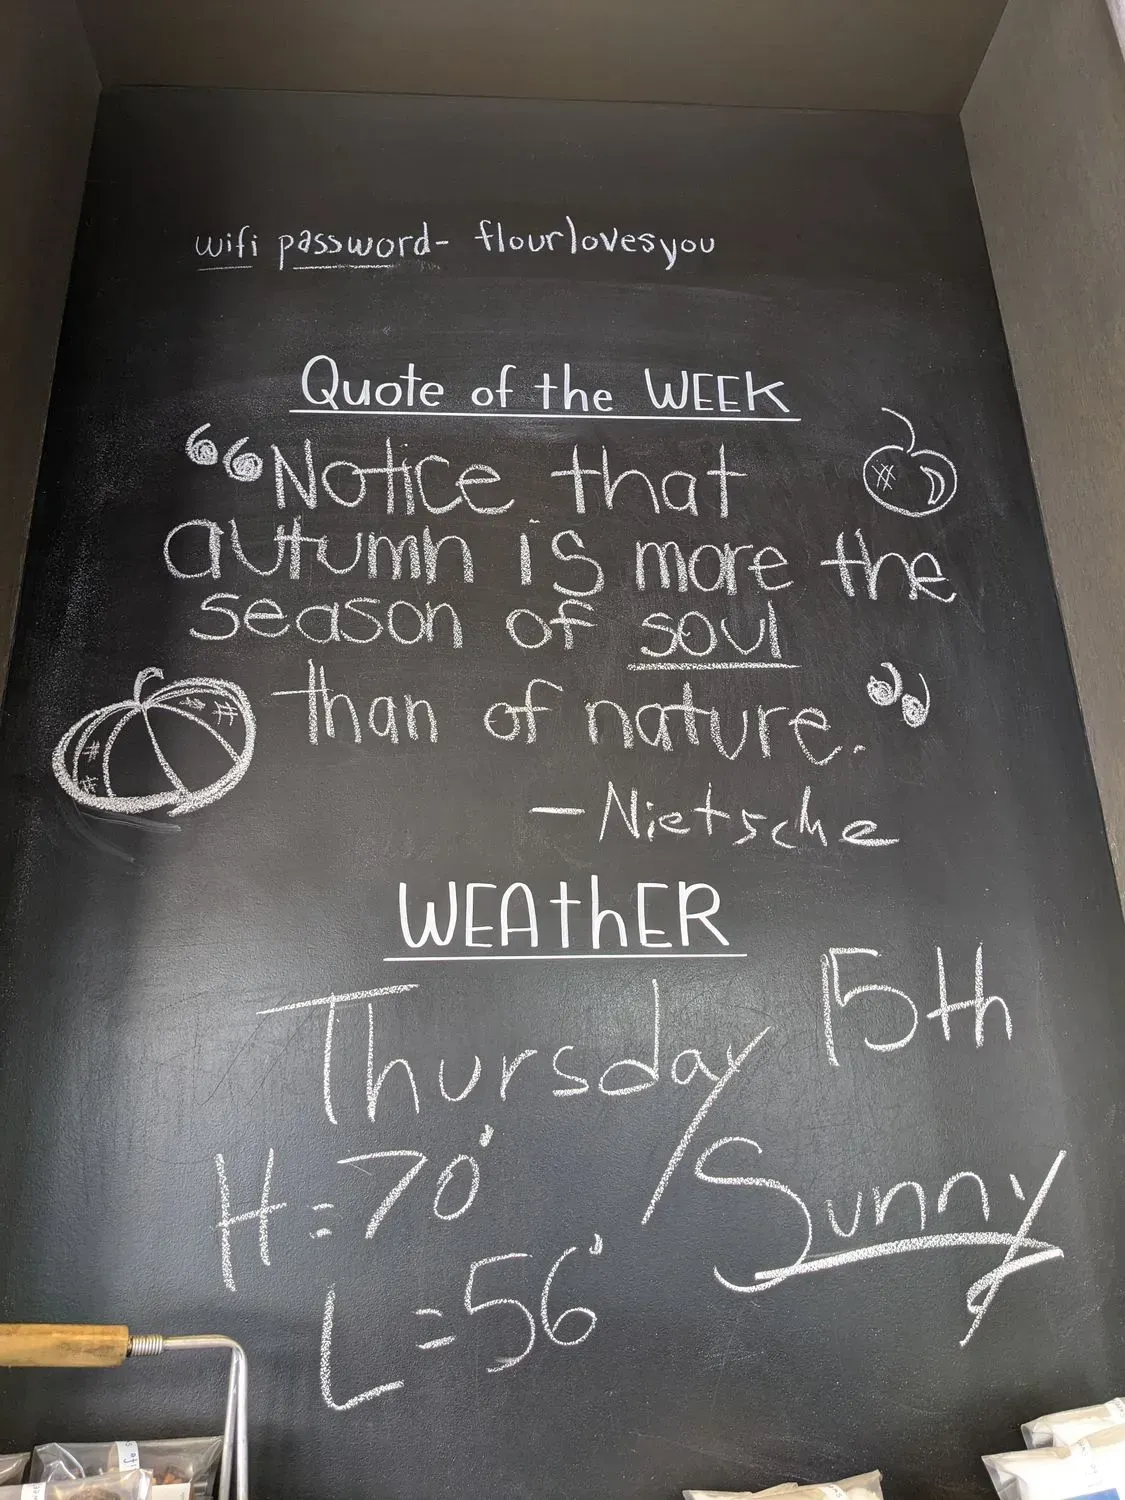 wifi password- flourlovesyou
Quote of the WEEK
“Notice that
autumn is more the
season of soul
than of nature.”
-Nietsche
WEAthER
Thursday 15th
H=70° Sunny
L=56°